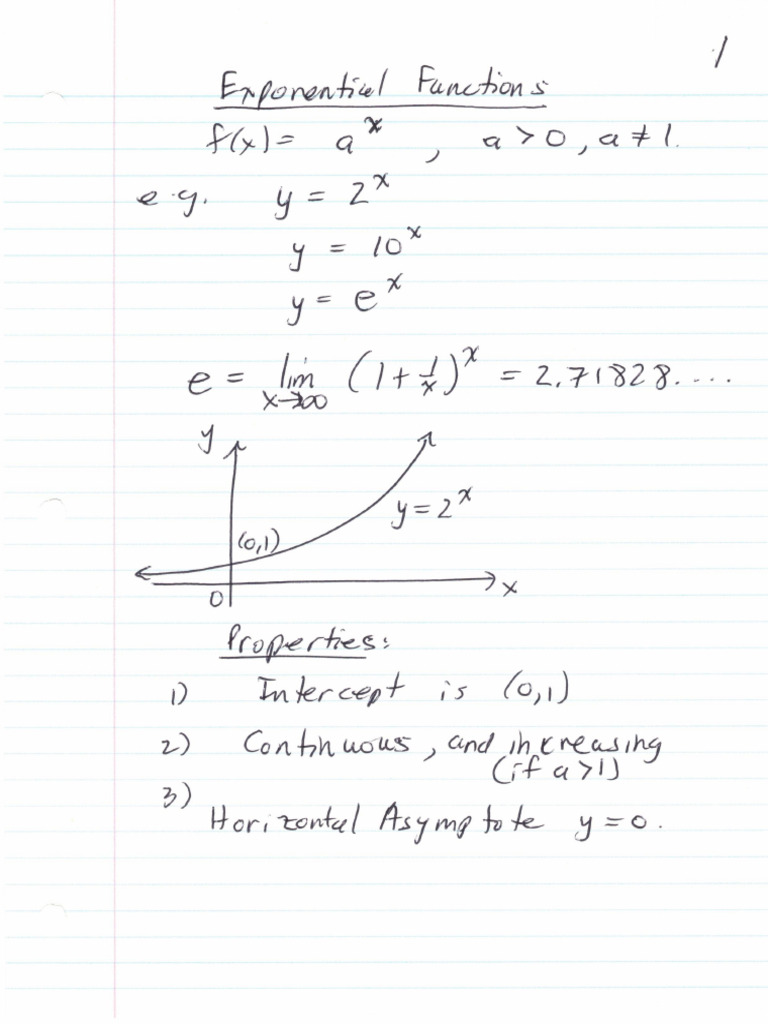 1
Exponential Functions
f(x) = a^x , a > 0, a ≠ 1.
e.g. y = 2^x
y = 10^x
y = e^x
e = lim x→∞ (1 + 1/x)^x = 2.71828....
y
y = 2^x
(0,1)
x
0
Properties:
1) Intercept is (0,1)
2) Continuous, and increasing
(if a > 1)
3)
Horizontal Asymptote y = 0.